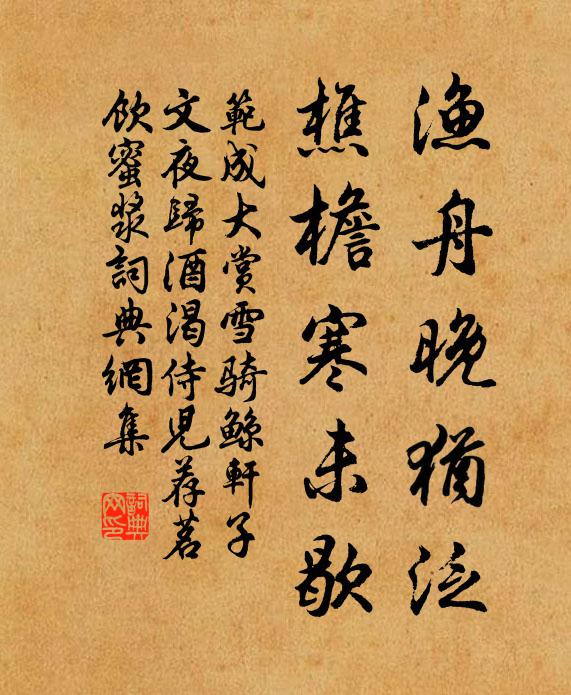 漁舟晚猶泛
樵檐寒未歇
範成大賞雪騎鯨軒子
文夜歸酒渴侍兒荐茗
飲蜜漿詞典網集
詞典
网印